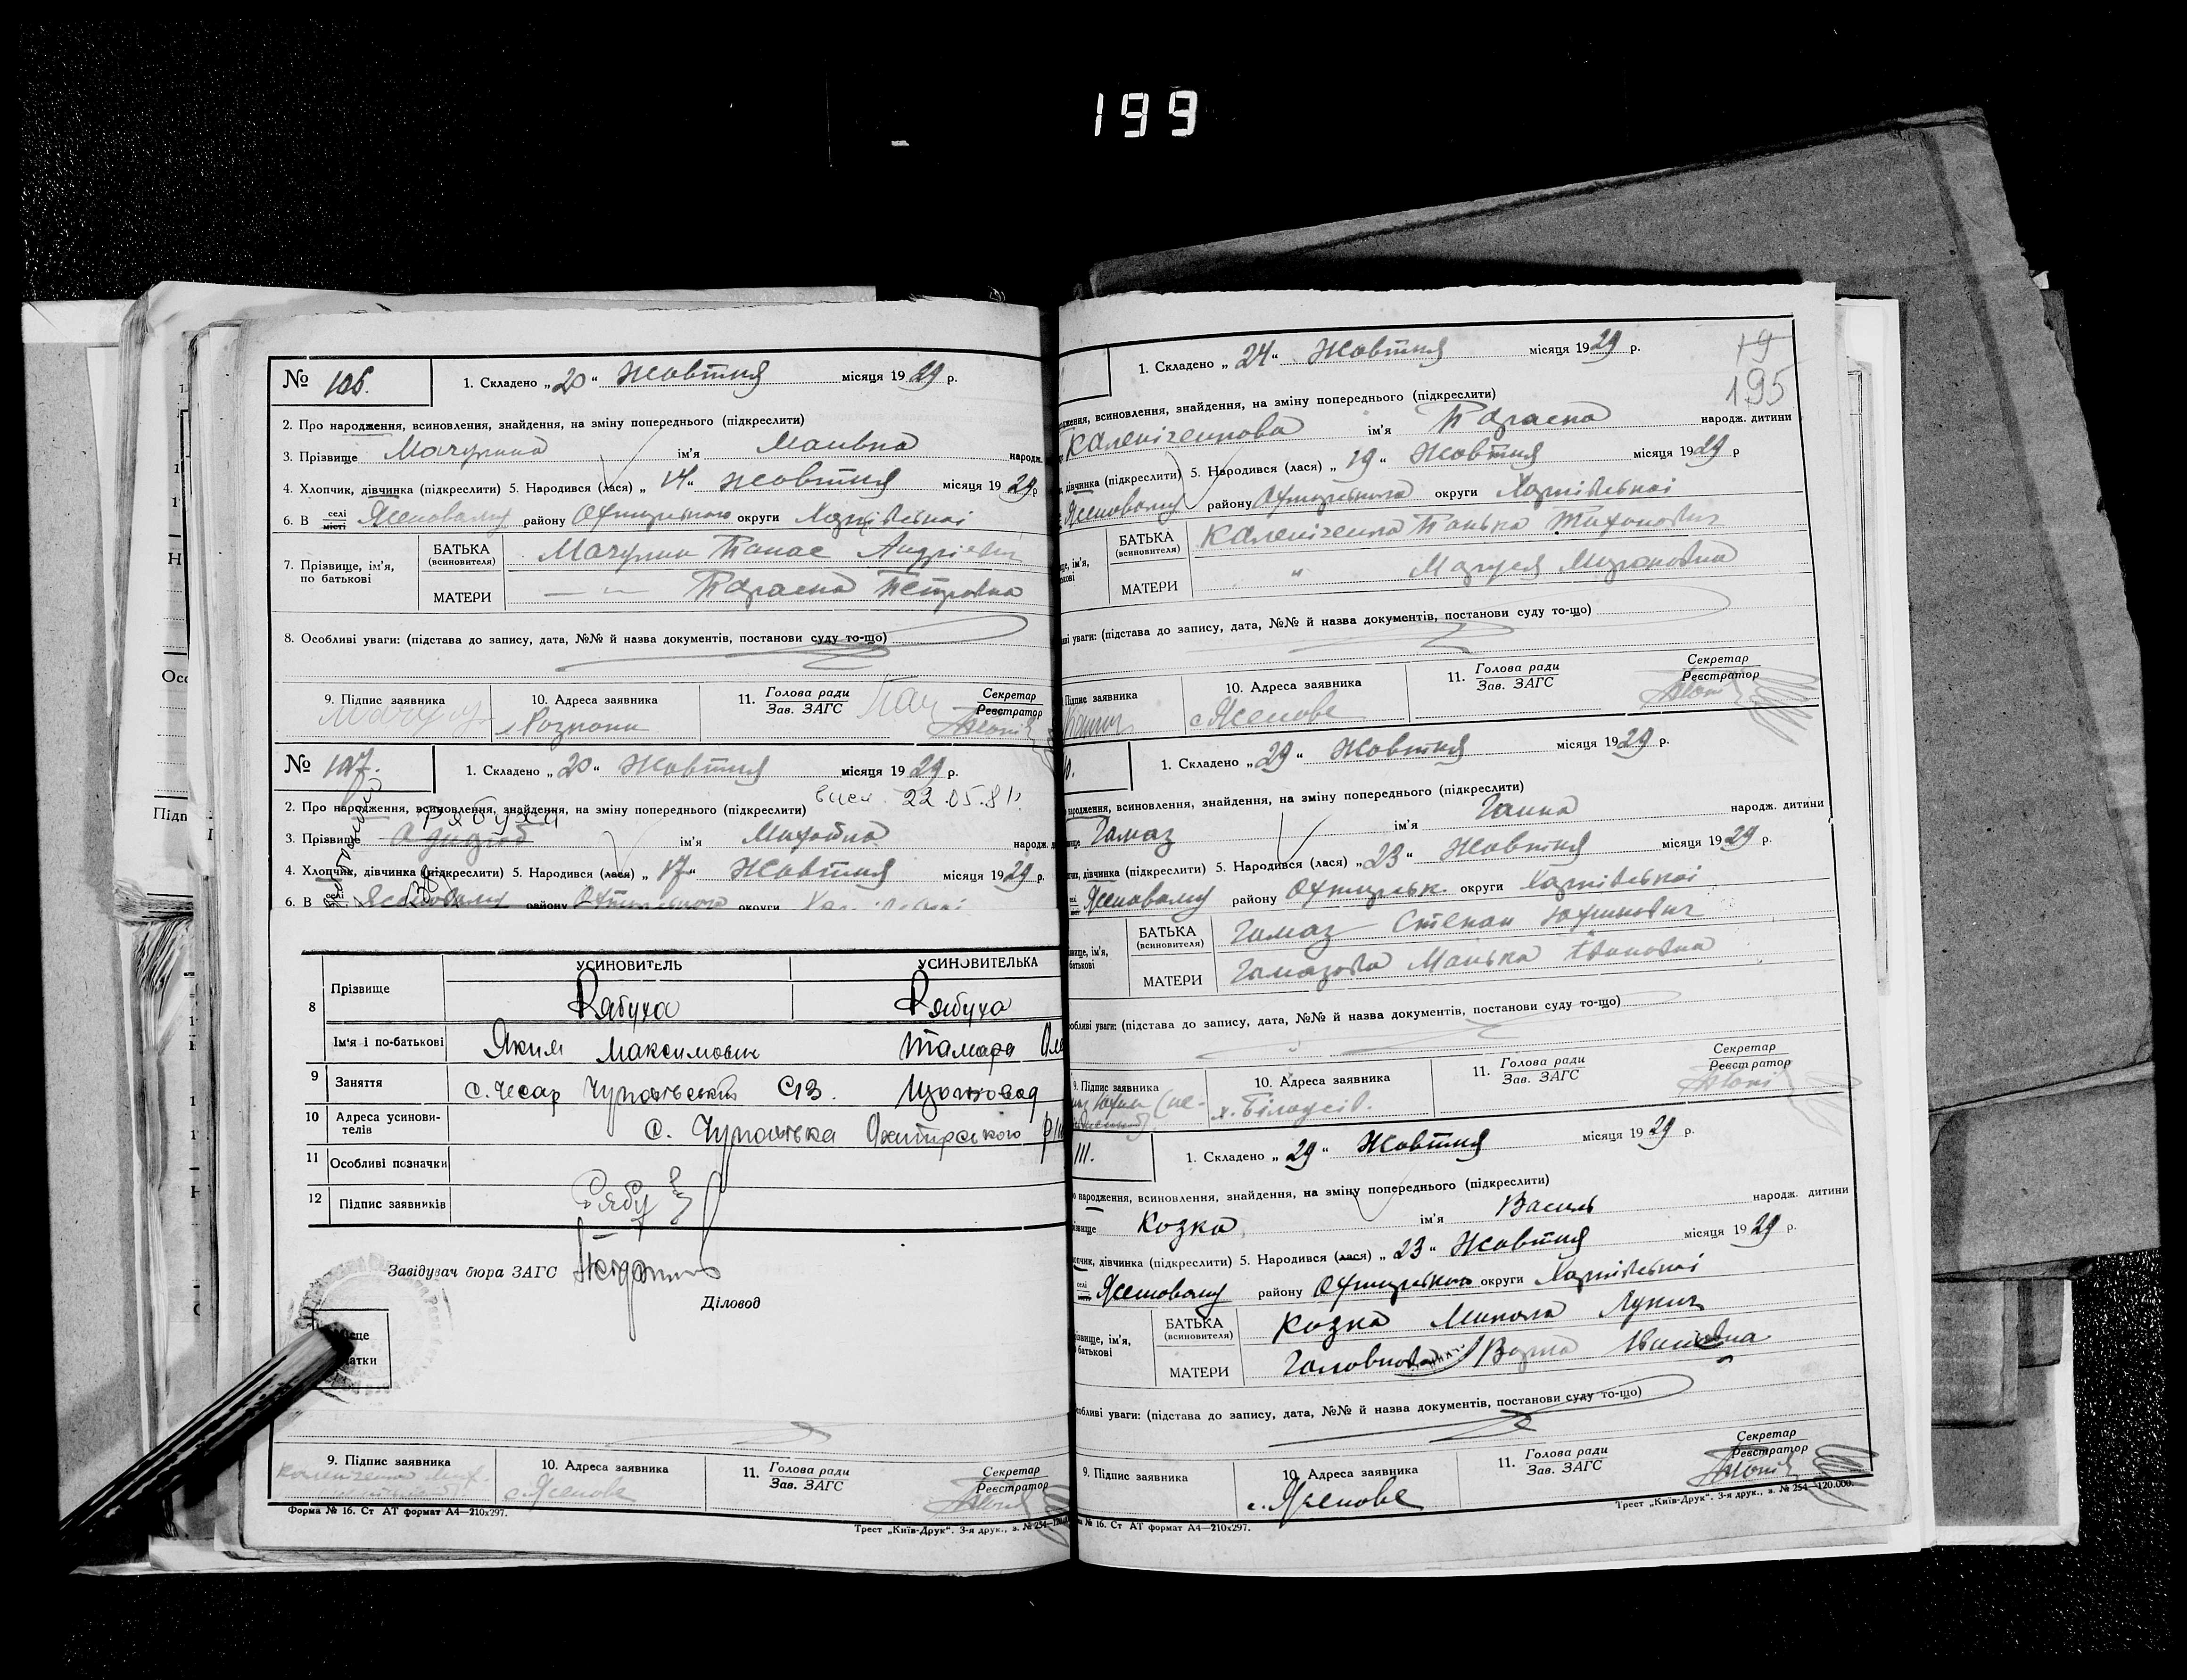 199
№ 106.
1. Складено „20“ Жовтня місяця 1929 р.
2. Про народження, всиновлення, знайдення, на зміну попереднього (підкреслити)
3. Прізвище ім'я народж.
4. Хлопчик, дівчинка (підкреслити) 5. Народився (лася) „14“ Жовтня місяця 1929 р
6. В селі місті Ясеновому району Охтирського округи Харківської
7. Прізвище, ім'я, по батькові
БАТЬКА (всиновителя) Панас Андрієвич
МАТЕРИ — „ — Параска Петровна
8. Особливі уваги: (підстава до запису, дата, №№ й назва документів, постанови суду то-що)
9. Підпис заявника
10. Адреса заявника
11. Голова ради Зав. ЗАГС
Секретар Реєстратор
№ 107.
1. Складено „20“ Жовтня місяця 1929 р.
2. Про народження, всиновлення, знайдення, на зміну попереднього (підкреслити)
22.05.81
Рябуха
3. Прізвище ім'я народж.
4. Хлопчик, дівчинка (підкреслити) 5. Народився (лася) „17“ Жовтня місяця 1929 р.
6. В Ясеновому району Охтирського округи
УСИНОВИТЕЛЬ УСИНОВИТЕЛЬКА
8 Прізвище Рябуха Рябуха
Ім'я і по-батькові Яким Максимович Тамара
9 Заняття
10 Адреса усинови-телів с. Чупахівка Охтирського
11 Особливі позначки
12 Підпис заявників
Завідувач бюра ЗАГС
Діловод
9. Підпис заявника
10. Адреса заявника с. Ясенове
11. Голова ради Зав. ЗАГС
Секретар Реєстратор
Форма № 16. Ст АТ формат А4—210x297.
Трест „Київ-Друк“. 3-я друк., з. № 254—120
19
195
1. Складено „24“ Жовтня місяця 1929 р.
всиновлення, знайдення, на зміну попереднього (підкреслити)
Каленіченкова ім'я Параска народж. дитини
дівчинка (підкреслити) 5. Народився (лася) „19“ Жовтня місяця 1929 р
Ясеновому району Охтирського округи Харківської
БАТЬКА (всиновителя) Каленіченко Панько Тихонович
МАТЕРИ „ Маруся Мироновна
уваги: (підстава до запису, дата, №№ й назва документів, постанови суду то-що)
Підпис заявника
10. Адреса заявника с. Ясенове
11. Голова ради Зав. ЗАГС
Секретар Реєстратор
1. Складено „29“ Жовтня місяця 1929 р.
народження, всиновлення, знайдення, на зміну попереднього (підкреслити)
Гамаз ім'я Ганна народж. дитини
дівчинка (підкреслити) 5. Народився (лася) „23“ Жовтня місяця 1929 р.
Ясеновому району Охтирськ. округи Харківської
БАТЬКА (всиновителя) Гамаз Степан Юхимович
МАТЕРИ Гамазова Манька Івановна
уваги: (підстава до запису, дата, №№ й назва документів, постанови суду то-що)
9. Підпис заявника
10. Адреса заявника х. Білоусів.
11. Голова ради Зав. ЗАГС
Секретар Реєстратор
111.
1. Складено „29“ Жовтня місяця 1929 р.
народження, всиновлення, знайдення, на зміну попереднього (підкреслити)
Козка ім'я Василь народж. дитини
дівчинка (підкреслити) 5. Народився (лася) „23“ Жовтня місяця 1929 р.
Ясеновому району Охтирського округи Харківської
БАТЬКА (всиновителя) Козка Микола Лукич
МАТЕРИ Івановна
уваги: (підстава до запису, дата, №№ й назва документів, постанови суду то-що)
9. Підпис заявника
10. Адреса заявника с. Ясенове
11. Голова ради Зав. ЗАГС
Секретар Реєстратор
№ 16. Ст АТ формат А4—210x297.
Трест „Київ-Друк“. 3-я друк., з. № 254—120.000.